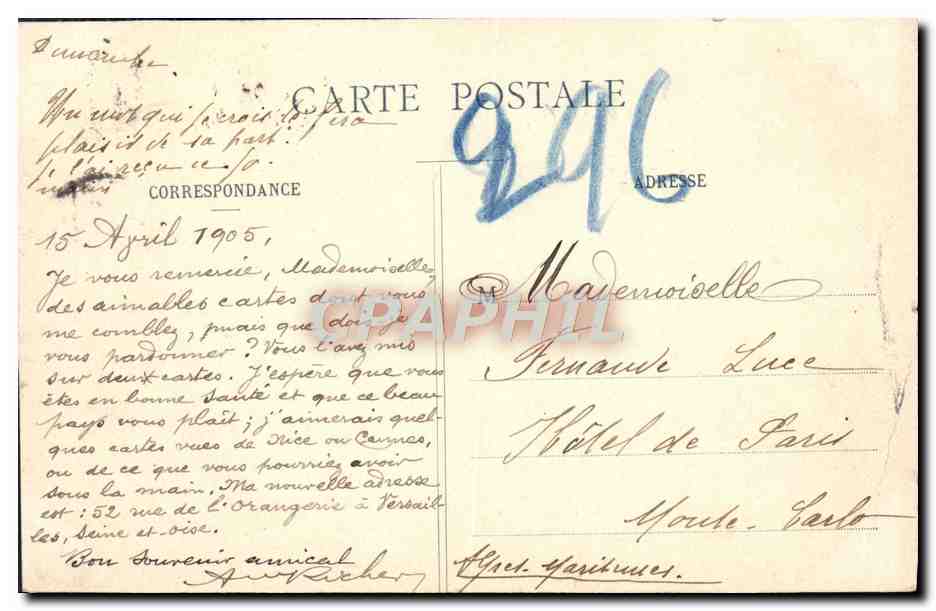 Dimanche
Un mot qui je crois te fera
plaisir de sa part.
je l'ai reçu ce
matin
CARTE POSTALE
296
CORRESPONDANCE
ADRESSE
15 Avril 1905,
Je vous remercie, Mademoiselle,
des aimables cartes dont vous
me comblez, mais que dois-je
vous pardonner? Vous l'avez mis
sur deux cartes. J'espère que vous
êtes en bonne santé et que ce beau
pays vous plaît; j'aimerais quel-
ques cartes vues de Nice ou Cannes,
ou de ce que vous pourriez avoir
sous la main. Ma nouvelle adresse
est: 52 rue de l'Orangerie à Versail-
les, Seine et-Oise.
Bon souvenir amical
M
Mademoiselle
Fernande Luce
Hôtel de Paris
Monte-Carlo
Alpes Maritimes.
CPAPHIL